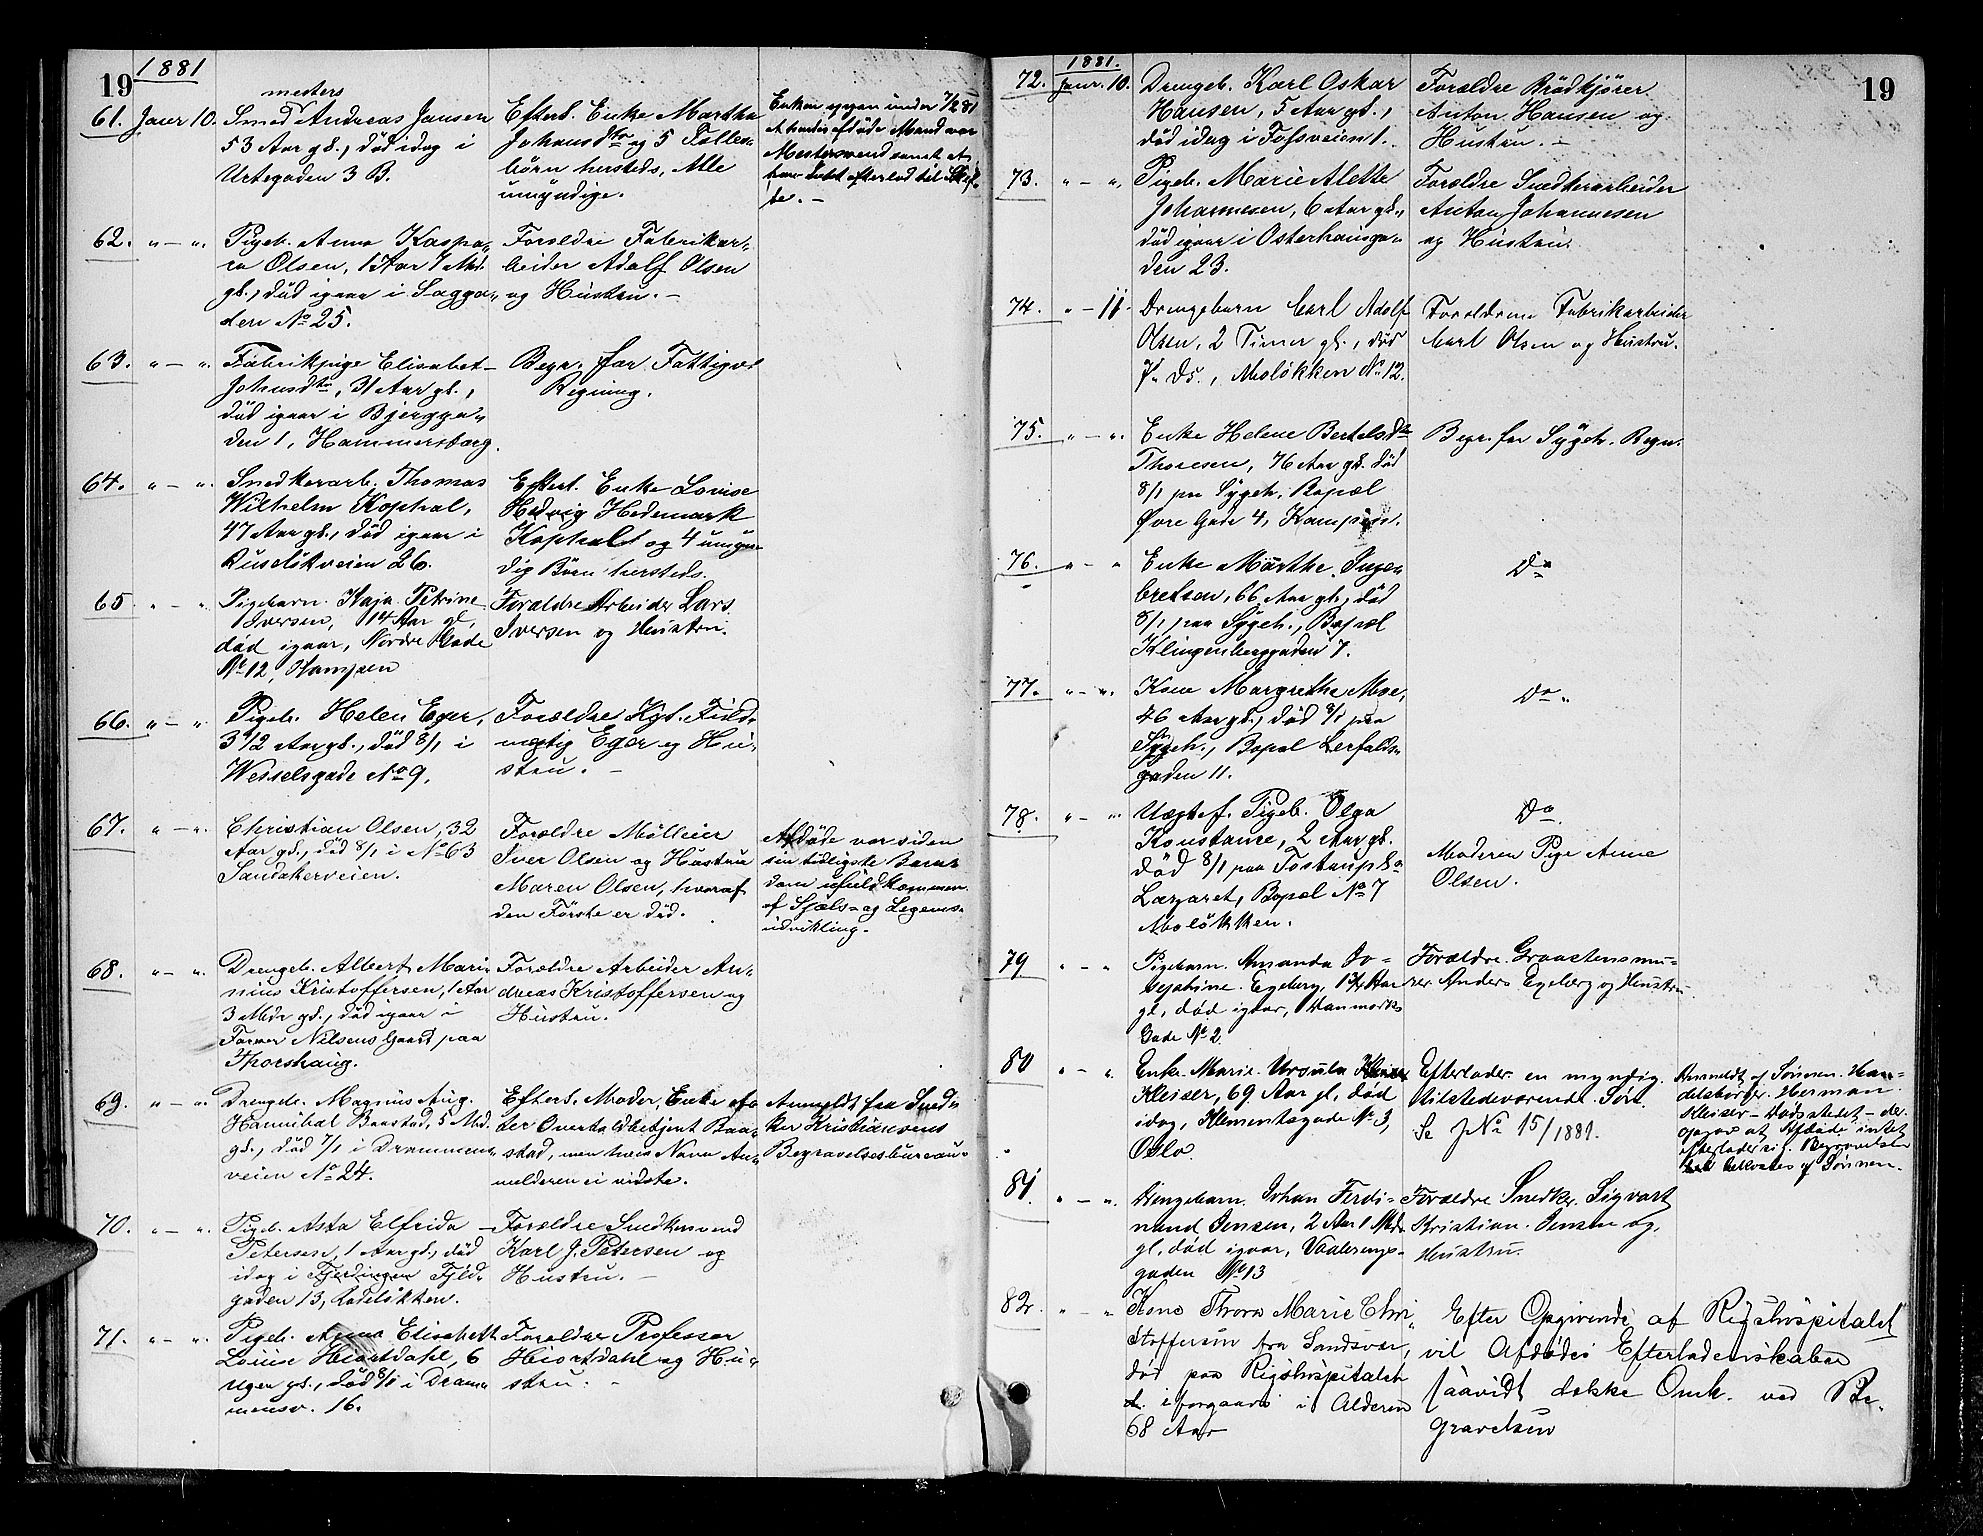 19
1881
mesters
61. Janr 10. Smed Andreas Jansen
53 Aar gl., død idag i
Urtegaden 3 B.
Efterl. Enke Martha
Johansdtr og 5 Fælles-
børn hersteds, Alle
umyndige.
Enken opgav under 7/2 81
at hendes afdøde Mand var
Mestersvend samt at
han Intet efterlod til Skif-
te. -
62. " - " Pigeb. Anna Kaspa-
ra Olsen, 1 Aar 7 Md.
gl., død igaar i Sagga-
den No 25.
Forældre Fabrikar-
beider Adolf Olsen
og Hustru. -
63. " - " Fabrikpige Elisabet
Johnsdtr, 31 Aar gl.,
død igaar i Bjergga-
den 1, Hammersborg.
Begr. for Fattigv.
Regning.
64. " - " Snedkerarb. Thomas
Wilhelm Kophal,
47 Aar gl., død igaar i
Ruseløkveien 26.
Efterl. Enke Lovise
Hedvig Hedemark
Kophal og 4 umyn-
dig Børn hersteds.
65 " - " Pigebarn Kaja Petrine
Iversen, 14 Aar gl,
død igaar, Nordre Gade
No 12, Kampen
Forældre Arbeider Lars
Iversen og Hustru.
66. " - " Pigeb. Helen Eger,
3 1/2 Aar gl., død 8/1 i
Wesselsgade No 9.
Forældre Kgl. Fuld-
mægtig Eger og Hu-
stru. -
67. " - " Christian Olsen, 32
Aar gl., død 8/1 i No 63
Sandakerveien.
Forældre Mølleier
Iver Olsen og Hustru
Maren Olsen, hvoraf
den Første er død.
Afdøde var siden
sin tidligste Barn-
dom ufuldkommen
af Sjæls- og Legems-
udvikling.
68. " - " Drengeb. Albert Mari-
nius Kristoffersen, 1 Aar
3 Mdr gl., død igaar i
Farver Nilsens Gaard paa
Thorshaug.
Forældre Arbeider An-
dreas Kristoffersen og
Hustru.
69. " - " Drengeb. Magnus Aug.
Hannibal Baastad, 5 Md.
gl., død 7/1 i Drammens-
veien No 24.
Efterl. Moder, Enke ef-
ter Overtoldbetjent Baa-
stad, men hvis Navn An-
melderen ei vidste.
Anmeldt fra Sned-
ker Kristiansens
Begravelsesbureau.
70. " - " Pigeb. Asta Elfrida
Petersen, 1 Aar gl., død
idag i Fjerdingen Fjeld-
gaden 13, Rodeløkken.
Forældre Snedkersvend
Karl J. Petersen og
Hustru. -
71. " - " Pigeb. Anna Elisabeth
Louise Hiortdahl, 6
Uger gl., død 8/1 i Dram-
mensv. 16.
Forældre Professor
Hiortdahl og Hu-
stru. -
19
1881.
72. Janr. 10. Drengeb. Karl Oskar
Hansen, 5 Aar gl.,
død idag i Fossveien 1.
Forældre Brødkjører
Anton Hansen og
Hustru. -
73. " - " Pigeb. Marie Alette
Johannesen, 6 Aar gl.,
død igaar i Osterhausga-
den 23.
Forældre Snedkerarbeider
Anton Johannesen
og Hustru.
74. " - 11. Drengebarn Carl Adolf
Olsen, 2 Timer gl., død
7de Ds., Moløkken No 12.
Forældrene Fabrikarbeider
Carl Olsen og Hustru.
75. " - " Enke Helene Bertelsdtr
Thoresen, 76 Aar gl. død
8/1 paa Sygeh., Bopæl
Øvre Gade 4, Kampen.
Begr. for Sygeh. Regn.
76. " - " Enke Marthe Inge-
bretsen, 66 Aar gl., død
8/1 paa Sygeh., Bopæl
Klingenberggaden 7.
Do
77. " - " Kone Margrethe Moe,
46 Aar gl., død 8/1 paa
Sygeh., Bopæl Lerfalds-
gaden 11.
Do.
78. " - " Uægtef. Pigeb. Olga
Konstance, 2 Aar gl.
død 8/1 paa Tostrups
Lazaret, Bopæl No 7
Moløkken.
Do.
Moderen Pige Anne
Olsen.
79 " - " Pigebarn Amanda Jo-
sephine Egeberg, 1 3/4 Aar
gl, død igaar, Danmarks
Gade No 2
Forældre Graastensmu-
rer Anders Egeberg og Hustru.
80 " - " Enke Marie Ursula
Kleiser, 69 Aar gl, død
idag, Klementsgade No 3,
Oslo.
Efterlader en myndig
tilstedeværende Søn.
Se JNo 15/1881.
Anmeldt af Sønnen Han-
delsborger Herman
Kleiser - Dødsstedet - der
opgav at Afdøde intet
efterlader sig. Begravelsen
bekostes af Sønnen.
81 " - " Drengebarn Johan Ferdi-
nand Jensen, 2 Aar 1 Md.
gl, død igaar, Vaalerengs-
gaden No 13
Forældre Snedker Sigvart
Kristian Jensen og
Hustru.
82. " - " Kone Thora Marie Chri-
stoffersen fra Sandsvær,
død paa Rigshospitalet
iforgaars i Alderen
68 Aar
Efter Opgivende af Rigshospitalet
vil Afdødes Efterladenskaber
saavidt dække Omk. ved Be-
gravelsen